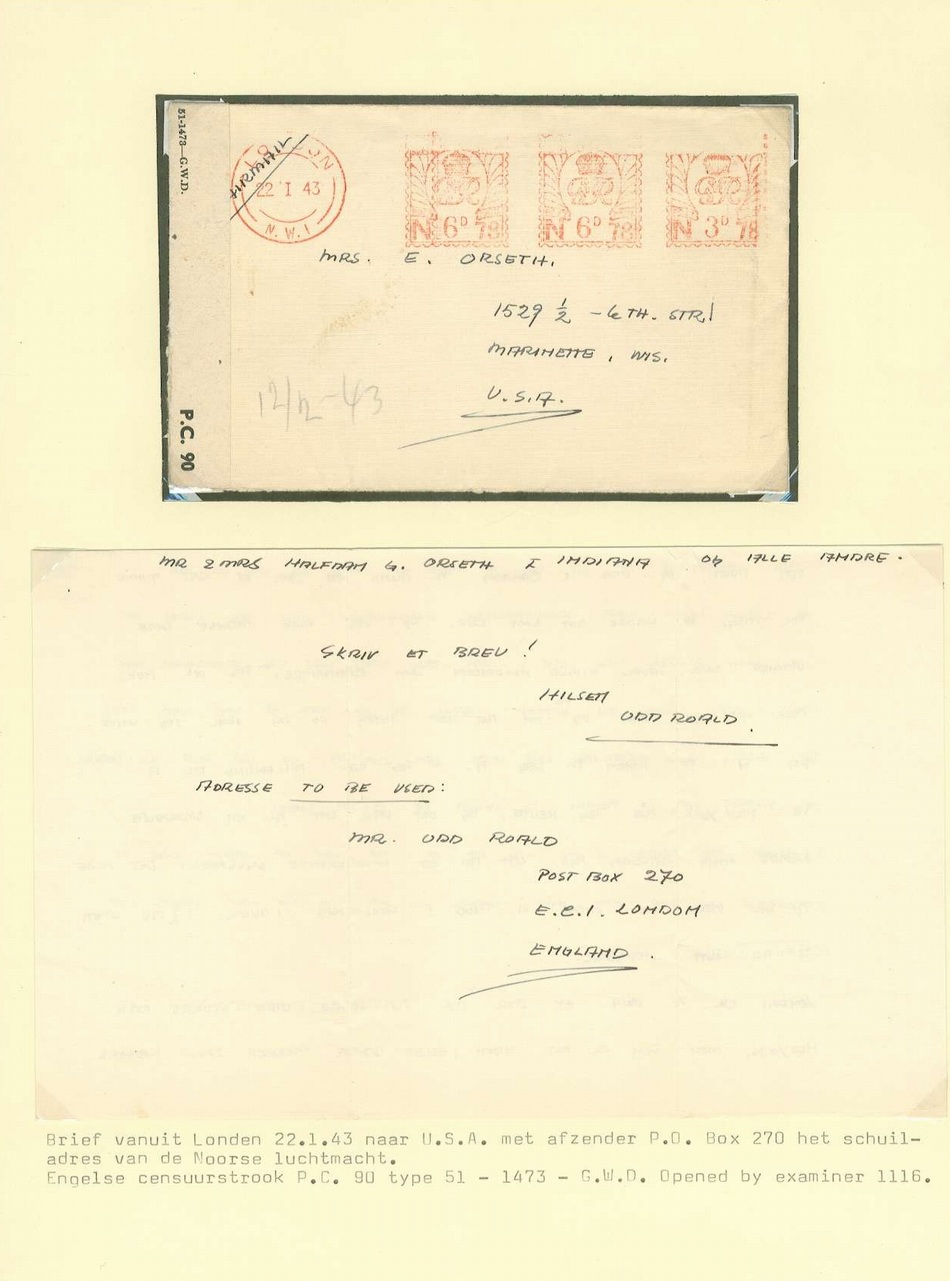 51-1473—G.W.D.
P.C. 90
LONDON
AIRMAIL
22 I 43
N.W.1
N 6D 78
N 6D 78
N 3D 78
MRS. E. ORSETH.
1529 1/2 - 6TH. STR!
MARINETTE, WIS.
U.S.A.
12/2-43
MR & MRS HALFDAN G. ORSETH I INDIANA OG ALLE ANDRE.
SKRIV ET BREV!
HILSEN
ODD ROALD.
ADRESSE TO BE USED:
MR. ODD ROALD
POST BOX 270
E.C.1. LONDON
ENGLAND.
Brief vanuit Londen 22.1.43 naar U.S.A. met afzender P.O. Box 270 het schuil-
adres van de Noorse luchtmacht.
Engelse censuurstrook P.C. 90 type 51 - 1473 - G.W.D. Opened by examiner 1116.